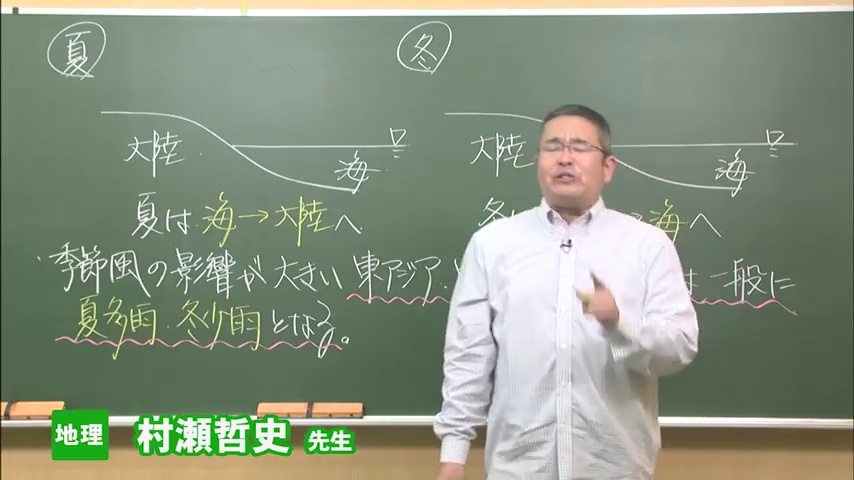 夏
冬
大陸
海
大陸
海
夏は 海→大陸へ
冬は
海へ
季節風の影響が大きい 東アジア・
は一般に
夏多雨・冬少雨となる。
地理 村瀬哲史 先生